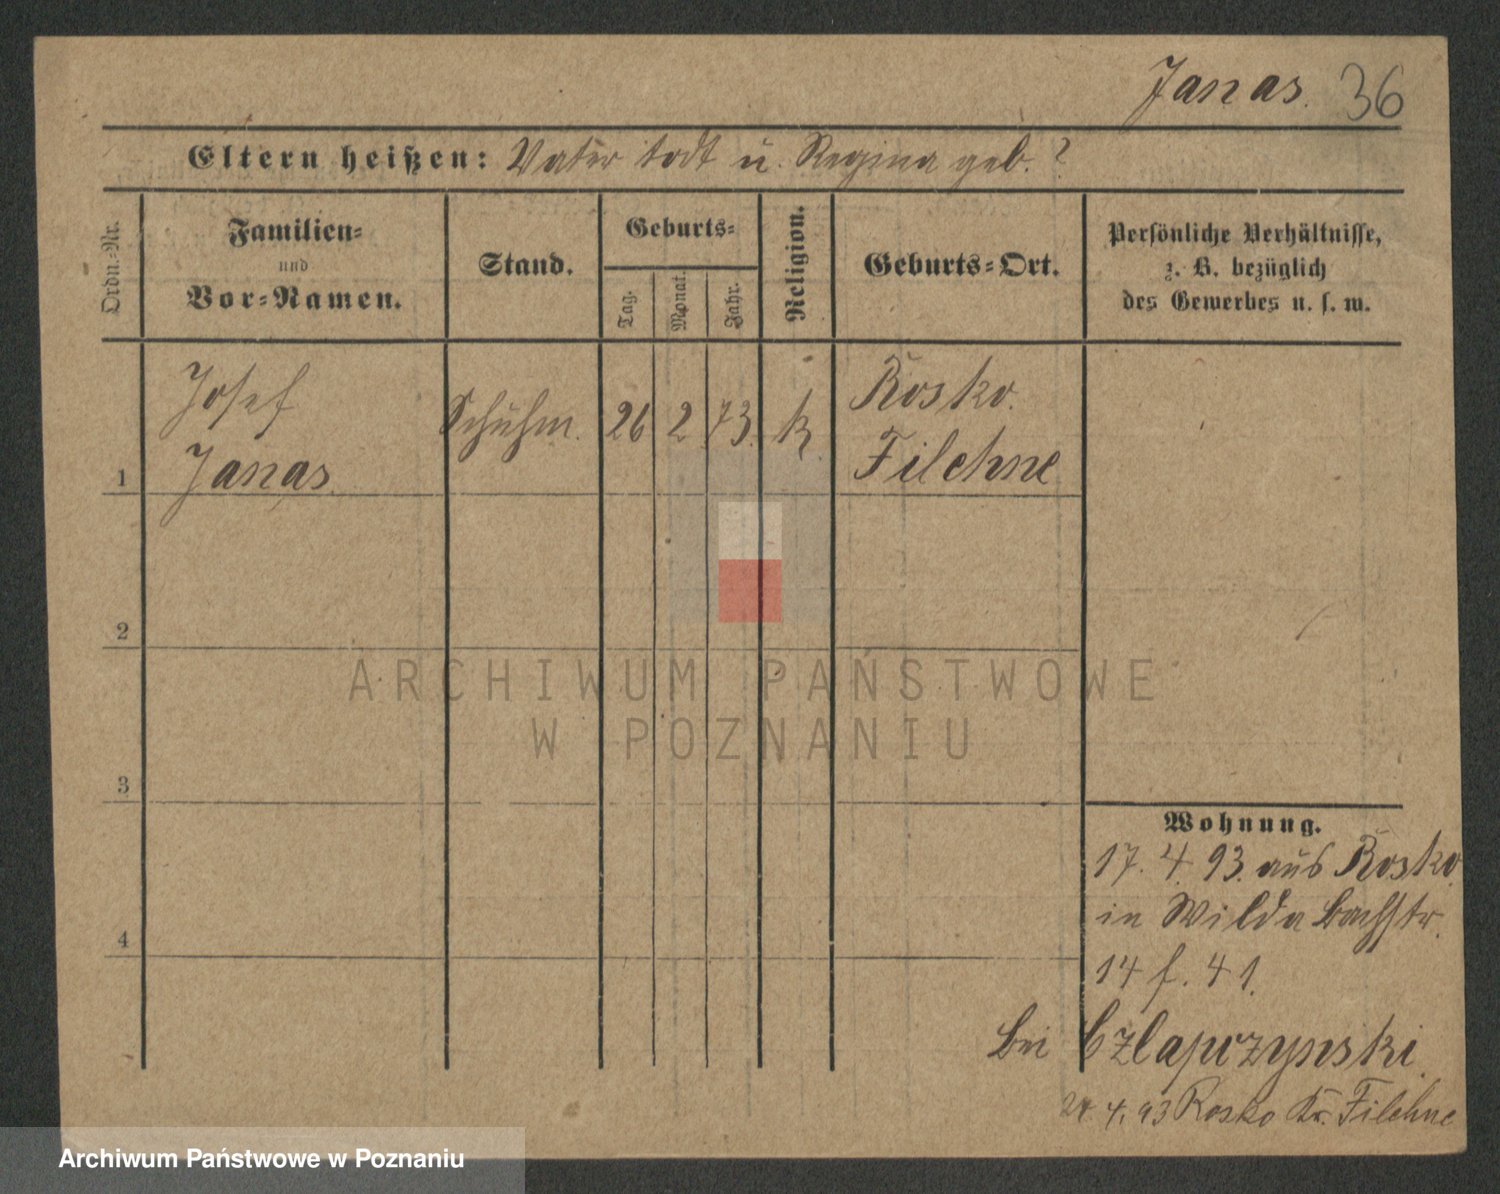 Janas. 36
Eltern heißen: Vater todt u. Regina geb. ?
Ordn.-Nr.
Familien-
und
Vor-Namen.
Stand.
Geburts-
Tag.
Monat.
Jahr.
Religion.
Geburts-Ort.
Persönliche Verhältnisse,
z. B. bezüglich
des Gewerbes u. s. w.
1 Josef Janas Schuhm. 26 2 73. k Rosko. Filehne
2
3
4
Wohnung.
17. 4. 93. aus Rosko
in Wilda Bachstr.
14 f. 41.
bei Czlapczynski.
24 4. 93 Rosko Kr. Filehne
ARCHIWUM PAŃSTWOWE
W POZNANIU
Archiwum Państwowe w Poznaniu